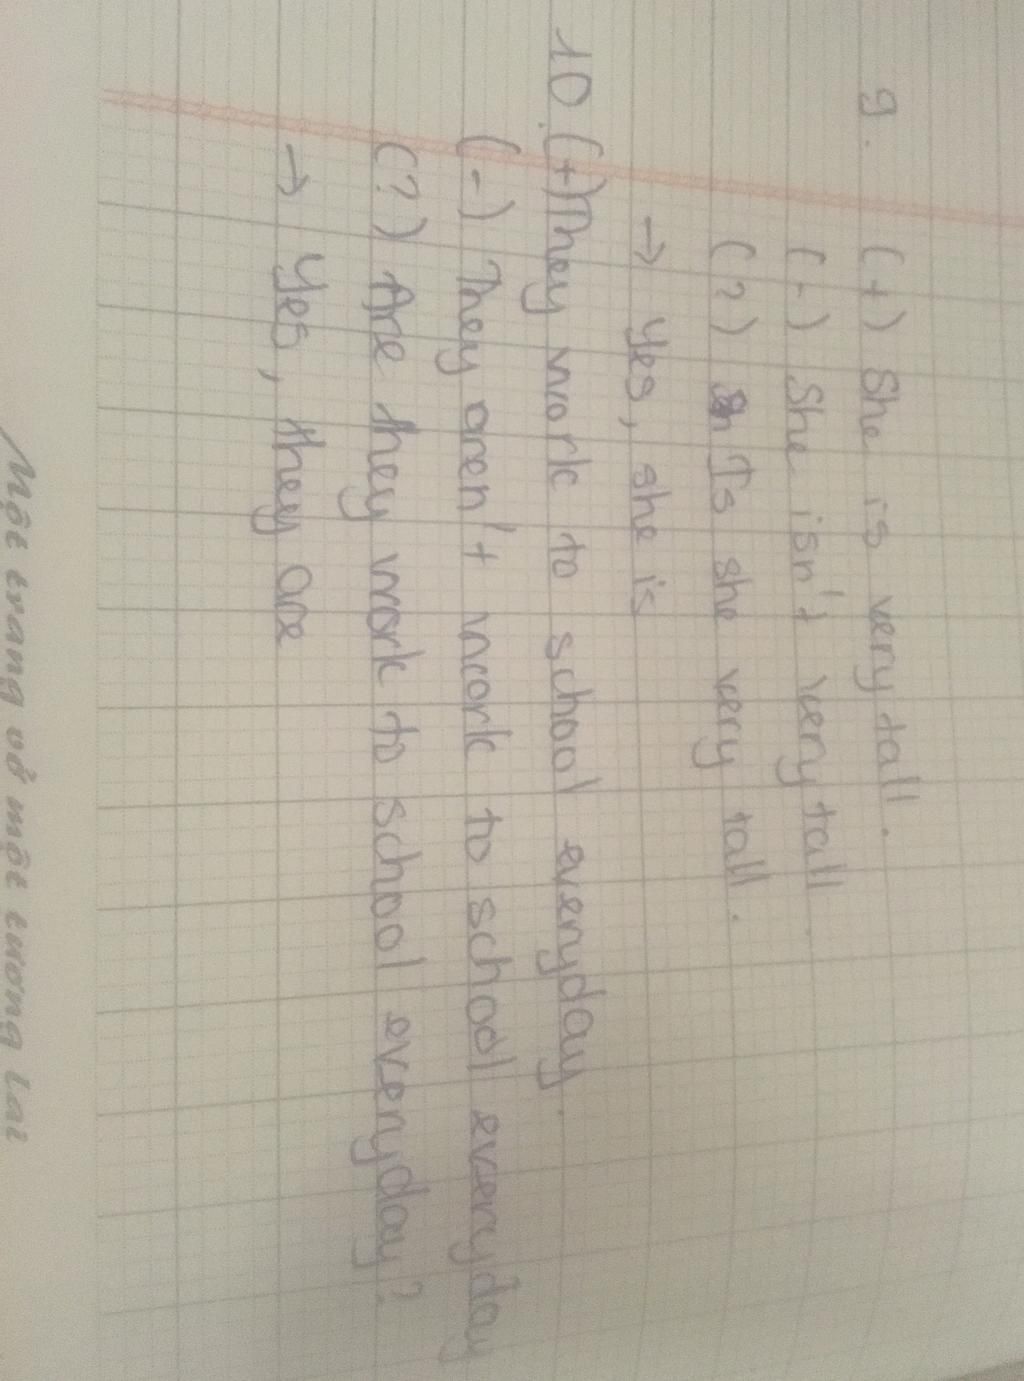 9. (+) She is very tall.
(-) She isn't very tall.
(?) Is she very tall.
→ Yes, she is
10. (+) They work to school everyday.
(-) They aren't work to school everyday
(?) Are they work to school everyday?
→ Yes, they are
Một trang vở một tương lai